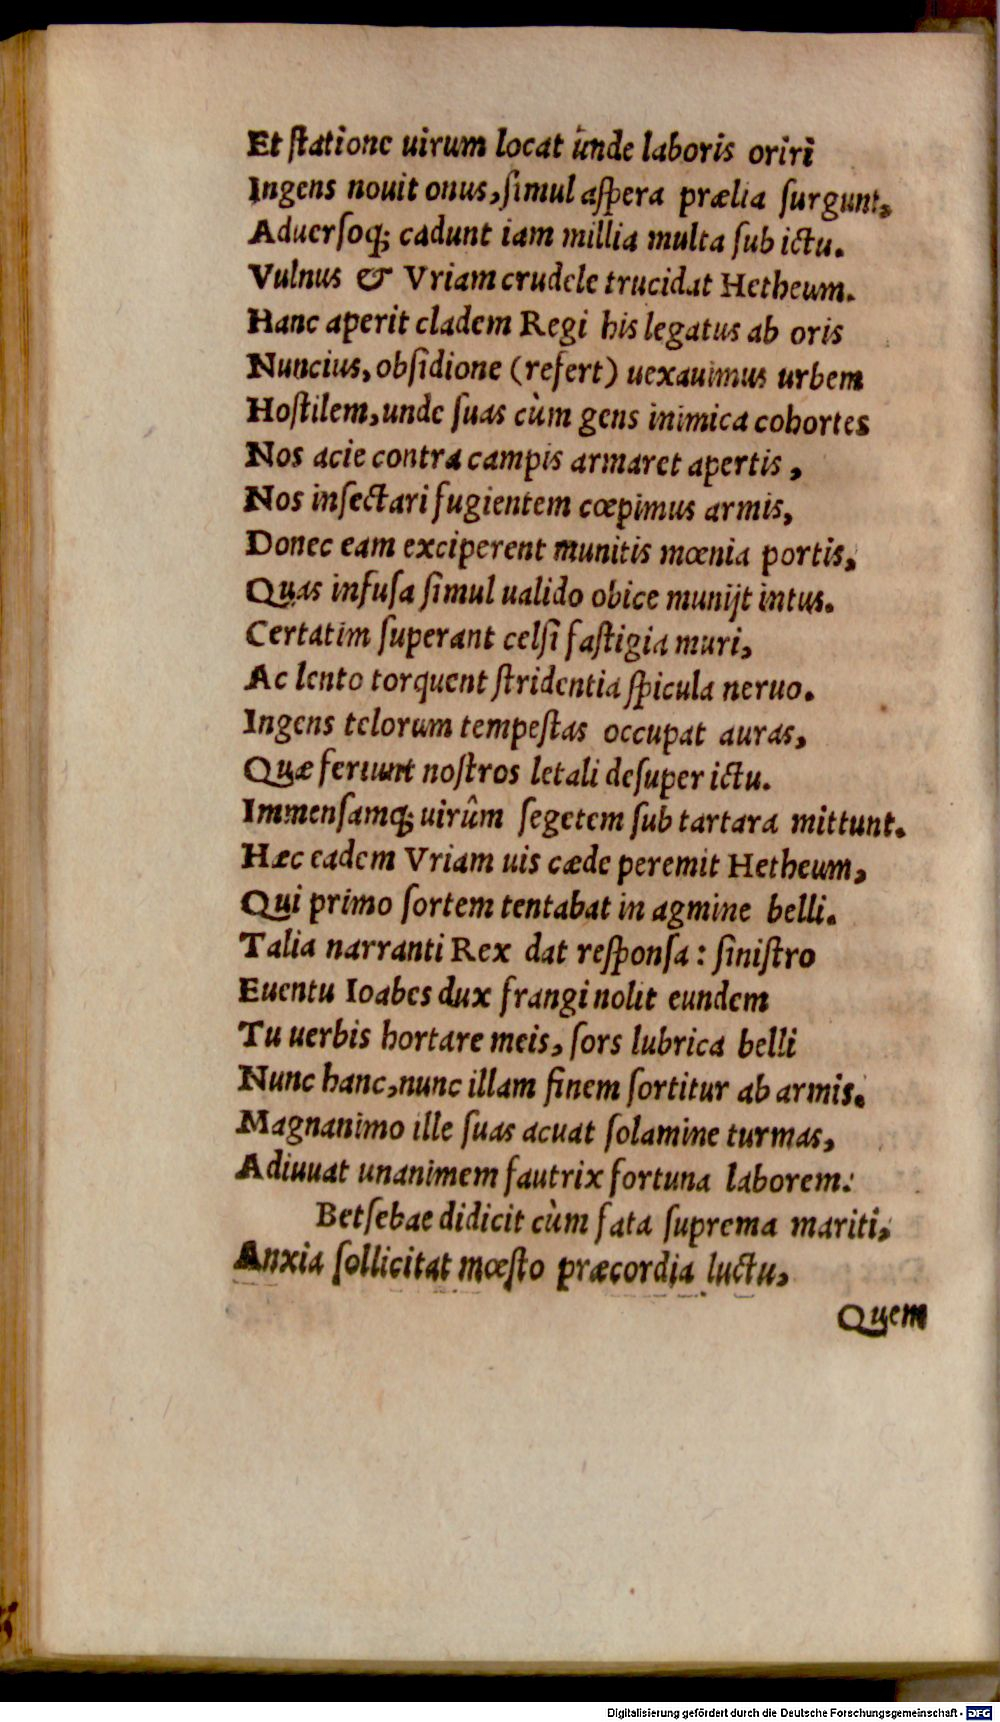 Et ſtatione uirum locat unde laboris oriri
Ingens nouit onus, ſimul aſpera prælia ſurgunt,
Aduerſoq; cadunt iam millia multa ſub ictu.
Vulnus & Vriam crudele trucidat Hetheum.
Hanc aperit cladem Regi his legatus ab oris
Nuncius, obſidione (refert) uexauimus urbem
Hoſtilem, unde ſuas cùm gens inimica cohortes
Nos acie contra campis armaret apertis,
Nos inſectari fugientem cœpimus armis,
Donec eam exciperent munitis mœnia portis,
Quas infuſa ſimul ualido obice munijt intus.
Certatim ſuperant celſi faſtigia muri,
Ac lento torquent ſtridentia ſpicula neruo.
Ingens telorum tempeſtas occupat auras,
Quæ feriunt noſtros letali deſuper ictu.
Immenſamq; uirûm ſegetem ſub tartara mittunt.
Hæc eadem Vriam uis cæde peremit Hetheum,
Qui primo ſortem tentabat in agmine belli.
Talia narranti Rex dat reſponſa: ſiniſtro
Euentu Ioabes dux frangi nolit eundem
Tu uerbis hortare meis, ſors lubrica belli
Nunc hanc, nunc illam finem ſortitur ab armis.
Magnanimo ille ſuas acuat ſolamine turmas,
Adiuuat unanimem fautrix fortuna laborem.
Betſebae didicit cùm fata ſuprema mariti,
Anxia ſollicitat mœſto præcordia luctu,
Quem
Digitalisierung gefördert durch die Deutsche Forschungsgemeinschaft - DFG